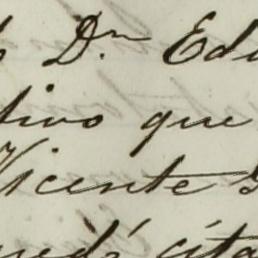 Dn Edu
tivo que
Vicente
quedó cita